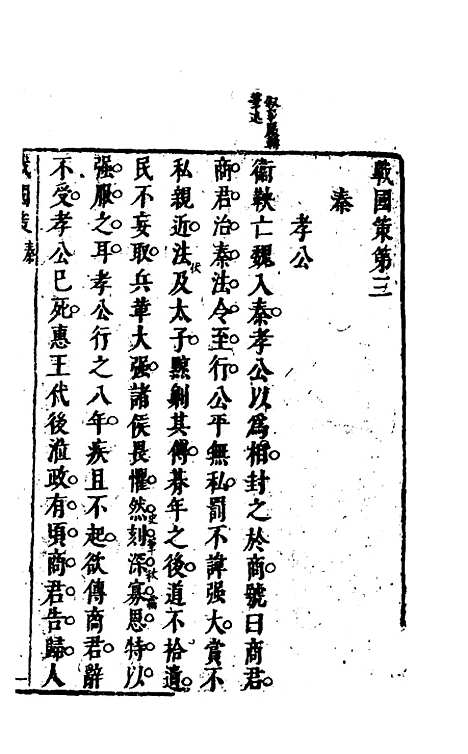 戰國策第三
秦
孝公
衛鞅亡魏入秦孝公以爲相封之於商號曰商君
商君治秦法令至行公平無私罰不諱强大賞不
私親近法及太子黥劓其傅朞年之後道不拾遺
民不妄取兵革大强諸侯畏懼然刻深寡恩特以
强服之耳孝公行之八年疾且不起欲傳商君辭
不受孝公已死惠王代後涖政有頃商君告歸人
戰國策 秦 一